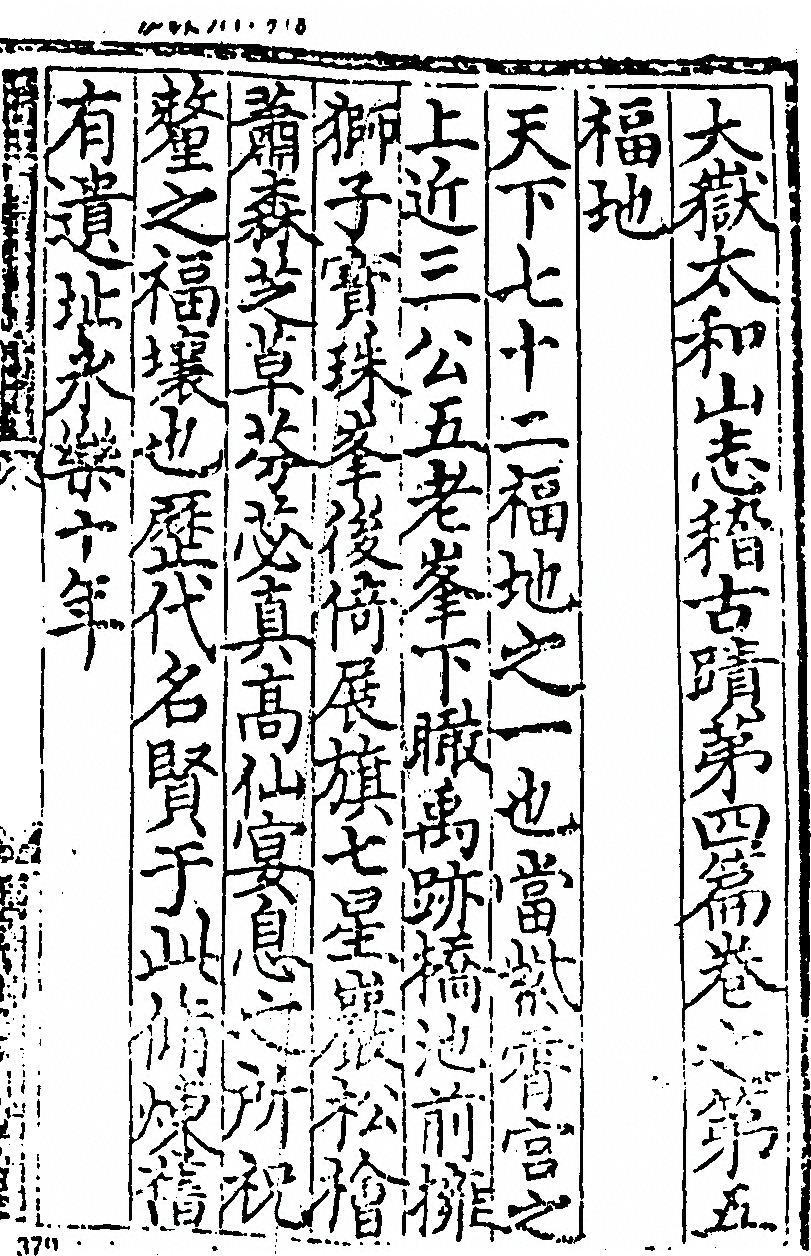 大嶽太和山志稽古蹟第四篇卷之第五
福地
天下七十二福地之一也當紫霄宫之
上近三公五老峯下瞰禹跡橋池前擁
獅子寶珠峯後倚展旗七星巖松檜
蕭森芝草芬苾真高仙宴息之所祝
釐之福壤也歷代名賢于此脩煉舊
有遺址永樂十年
370